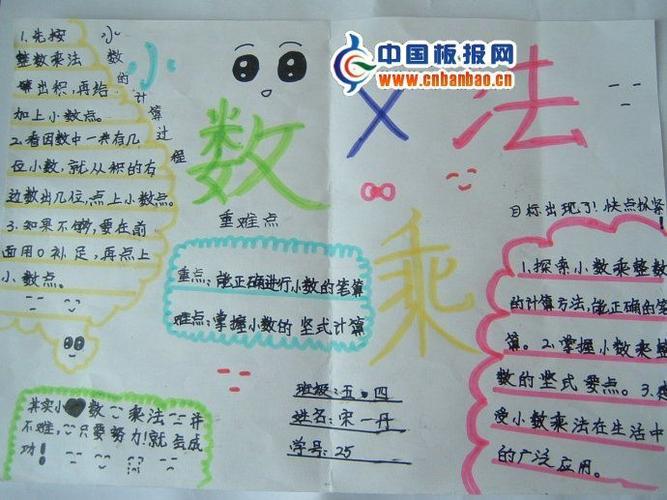 中国板报网
www.cnbanbao.cn
小数乘法
小数的计算过程
1.先按
整数乘法
算出积,再给
加上小数点。
2.看因数中一共有几
位小数,就从积的右
边数出几位,点上小数点。
3.如果不够,要在前
面用0补足,再点上
小数点。
重难点
重点:能正确进行小数的笔算
难点:掌握小数的竖式计算
目标出现了!快点抓紧
1.探索小数乘整数
的计算方法,能正确的笔
算。2.掌握小数乘整
数的竖式要点。3.
受小数乘法在生活中
的广泛应用。
其实小数乘法并
不难,只要努力!就会成
功!
班级:五.四
姓名:宋一丹
学号:25